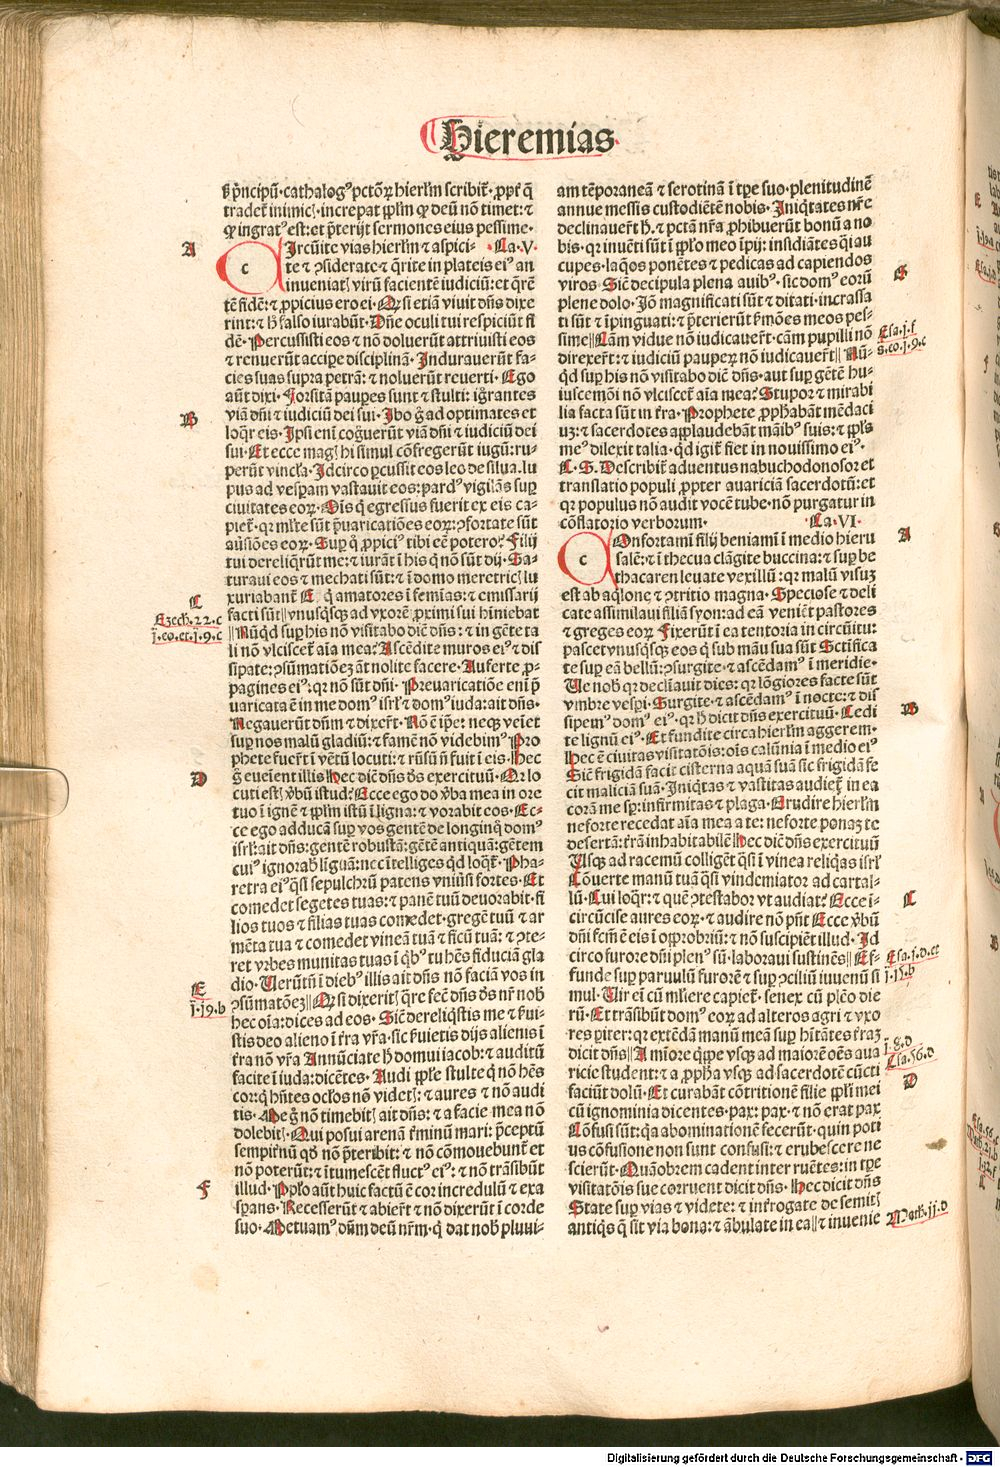 Hieremias
ß p̃ncipũ·cathalogꝰ pctõꝝ hierl̃m scribit̃·ꝓpt̃ q̃
tradet̃ inimicꝭ·increpat ppl̃m qꝫ deũ nõ timet:⁊
qꝫ ingratꝰ est:et p̃terijt sermones eius pessime·
A
Ircũite vias hierl̃m ⁊ aspici- ·Ca·V·
c
te ⁊ ꝯsiderate ⁊ q̃rite in plateis eiꝰ an
inueniatꝭ virũ facientẽ iudiciũ:et q̃rẽ
tẽ fidẽ:⁊ ꝓpicius ero ei·Qꝫ si etiã viuit dñs dixe
rint:⁊ h̃ falso iurabũt·Dñe oculi tui respiciũt fi
dẽ·Percussisti eos ⁊ nõ doluerũt attriuisti eos
⁊ renuerũt accipe disciplinã·Indurauerũt fa-
cies suas supra petrã:⁊ noluerũt reuerti·Ego
aũt dixi·Forsitã pauꝑes sunt ⁊ stulti:igñrantes
B
viã dñi ⁊ iudiciũ dei sui·Ibo g̃ ad optimates et
loq̃r eis·Ipsi eni cog̃uerũt viã dñi ⁊ iudiciũ dei
sui·Et ecce magꝭ hi simul cõfregerũt iugũ:ru-
perũt vincl̃a·Idcirco ꝑcussit eos leo de silua·lu
pus ad vesꝑam vastauit eos:pardꝰ vigilãs suꝑ
ciuitates eoꝝ·Oĩs q̃ egressus fuerit ex eis ca-
piet̃·qꝛ ml̃te sũt p̃uaricatiões eoꝝ:ꝯfortate sũt
aũsiões eoꝝ·Suꝑ q̃ ꝓpiciꝰ tibi eẽ potero?Filij
tui dereliq̃rũt me:⁊ iurãt ĩ his q̃ nõ sũt dij·Sa-
turaui eos ⁊ mechati sũt:⁊ ĩ domo meretricꝭ lu
xuriabant̃·E q̃ amatores ĩ femias:⁊ emissarij
C
Ezech·22·c
j·eo·et·j·9·c
facti sũt||vnusq̃sqꝫ ad vxorẽ ꝓximi sui hĩniebat
||Nũq̃d suꝑ his nõ visitabo dicit dñs:⁊ in gẽte ta
li nõ vlciscet̃ aĩa mea?Ascẽdite muros eiꝰ ⁊ dis
sipate:ꝯsũmatiõeꝫ ãt nolite facere·Auferte ꝓ-
pagines eiꝰ:qꝛ nõ sũt dñi·Preuaricatiõe eni p̃
uaricata ẽ in me domꝰ isrl̃ ⁊ domꝰ iuda:ait dñs·
Negauerũt dñm ⁊ dixert̃·Nõ ẽ ip̃e:neqꝫ veĩet
suꝑ nos malũ gladiũ:⁊ famẽ nõ videbimꝰ·Pro
phete fuert̃ ĩ vẽtũ locuti:⁊ rñsũ ñ fuit ĩ eis·Hec
D
g̃ eueĩent illis·Hec dic̃ dñs d̃s exercituũ·Qꝛ lo
cuti estꝭ v̾bũ istud?Ecce ego do v̾ba mea in ore
tuo ĩ ignẽ ⁊ ppl̃m istũ ĩ ligna:⁊ vorabit eos·Ec-
ce ego adducã suꝑ vos gentẽ de longinq̃ domꝰ
isrl̃:ait dñs:gentẽ robustã:gẽtẽ antiquã:gẽtem
cuiꝰ ignorabꝭ liguã:nec ĩtelliges q̃d loq̃t̃·Pha-
retra eiꝰ q̃si sepulchrũ patens vniũsi fortes·Et
comedet segetes tuas:⁊ panẽ tuũ deuorabit·fi
lios tuos ⁊ filias tuas comedet·gregẽ tuũ ⁊ ar
mẽta tua ⁊ comedet vineã tuã ⁊ ficũ tuã:⁊ ꝯte-
ret vrbes munitas tuas ĩ q̃bꝰ tu hẽs fiduciã gla
E
j·j9·b
dio·Uerũtñ ĩ diebꝰ illis ait dñs nõ faciã vos in
ꝯsũmatõeꝫ||Qꝫ si dixeritꝭ q̃re fec̃ dñs d̃s nr̃ nob̃
hec oĩa:dices ad eos·Sic̃ dereliq̃stis me ⁊ f̃ui-
stis deo alieno ĩ t̃ra vr̃a·sic f̃uietis dijs alienis ĩ
t̃ra nõ vr̃a Annũciate h̃ domui iacob:⁊ auditũ
facite ĩ iuda:dicẽtes·Audi ppl̃e stulte q̃ nõ hẽs
cor:q̃ hñtes ocl̃os nõ videtꝭ:⁊ aures ⁊ nõ audi
tis·Me g̃ nõ timebitꝭ ait dñs:⁊ a facie mea nõ
dolebitꝭ·Qui posui arenã t̾minũ mari:p̃ceptũ
sempit̾nũ qd̃ nõ p̃teribit:⁊ nõ cõmouebunt̃ et
nõ poterũt:⁊ ĩtumescẽt fluctꝰ eiꝰ:⁊ nõ trãsibũt
F
illud·Ppl̃o aũt huic factũ ẽ cor incredulũ ⁊ exa
sꝑans·Recesserũt ⁊ abiert̃ ⁊ nõ dixerũt ĩ corde
suo·Metuamꝰ dñm deũ nr̃m·q̃ dat nob̃ pluui-
am tẽporaneã ⁊ serotinã ĩ tp̃e suo·plenitudinẽ
annue messis custodiẽtẽ nobis·Iniq̃tates nr̃e
declinauert̃ h̃·⁊ pctã nr̃a ꝓhibuerũt bonũ a no
bis·qꝛ inuẽti sũt ĩ ppl̃o meo ĩpij:insidiãtes q̃i au
cupes·laq̃os ponẽtes ⁊ pedicas ad capiendos
G
viros·Sic̃ decipula plena auibꝰ·sic domꝰ eorũ
plene dolo·Iõ magnificati sũt ⁊ ditati·incrassa
ti sũt ⁊ ĩpinguati:⁊ p̃terierũt s̾mões meos pes-
Esa·j·f
s·eo·j·9·c
sime||Cãm vidue nõ iudicauert̃·cãm pupilli nõ
direxert̃:⁊ iudiciũ pauꝑeꝝ nõ iudicauert̃||Nũ-
q̃d suꝑ his nõ visitabo dic̃ dñs·aut suꝑ gẽtẽ hu-
iuscemõi nõ vlciscet̃ aĩa mea?Stupor ⁊ mirabi
lia facta sũt in t̃ra·Prophete ꝓph̃abãt mẽdaci
uꝫ:⁊ sacerdotes applaudebãt mãibꝰ suis:⁊ ppl̃s
meꝰ dilexit talia·q̃d igit̃ fiet in nouissimo eiꝰ·
C·S·Describit̃ aduentus nabuchodonosor et
translatio populi ꝓpter auariciã sacerdotũ:et
qꝛ populus nõ audit vocẽ tube·nõ purgatur in
cõflatorio verborum· ·Ca·VI·
A
Onfortami filij beniami ĩ medio hieru
c
salẽ:⁊ ĩ thecua clãgite buccina:⁊ suꝑ be
thacaren leuate vexillũ:qꝛ malũ visuꝫ
est ab aq̃lone ⁊ ꝯtritio magna·Speciose ⁊ deli
cate assimilaui filiã syon:ad eã veniẽt pastores
⁊ greges eoꝝ·Fixerũt ĩ ea tentoria in circũitu:
pascet vnusq̃sqꝫ eos q̃ sub mãu sua sũt·Sc̃tifica
te suꝑ eã bellũ:ꝯsurgite ⁊ ascẽdamꝰ ĩ meridie·
Ue nob̃ qꝛ declĩauit dies:qꝛ lõgiores facte sũt
vmbre vesꝑi·Surgite ⁊ ascẽdamꝰ ĩ nocte:⁊ dis
B
sipemꝰ domꝰ eiꝰ·qꝛ h̃ dicit dñs exercituũ·Cedi
te lignũ eiꝰ·Et fundite circa hierl̃m aggerem·
Hec ẽ ciuitas visitatõis:oĩs calũnia ĩ medio eiꝰ
Sic̃ frigidã facit cisterna aquã suã sic frigidã fe
cit maliciã suã·Iniq̃tas ⁊ vastitas audiet̃ in ea
corã me sꝑ:infirmitas ⁊ plaga·Erudire hierl̃m
ne forte recedat aĩa mea a te:ne forte ponaꝫ te
desertã:t̃rã inhabitabilẽ·Hec dic̃ dñs exercituũ
Usqꝫ ad racemũ colligẽt q̃si ĩ vinea reliq̃as isrl̃
Cõuerte manũ tuã q̃si vindemiator ad cartal-
C
lũ·Cui loq̃r:⁊ quẽ ꝯtestabor vt audiat?Ecce ĩ-
circũcise aures eoꝝ·⁊ audire nõ pñt Ecce v̾bũ
dñi fc̃m ẽ eis ĩ oꝓbriũ:⁊ nõ suscipiẽt illud·Id
Esa·j·d·et
j·j5·b
circo furore dñi plenꝰ sũ·laboraui sustinẽs||Ef-
funde suꝑ paruulũ furorẽ ⁊ suꝑ ꝯciliũ iuuenũ si
mul·Uir ei cũ ml̃iere capiet̃·senex cũ plẽo die
rũ·Et trãsibũt domꝰ eoꝝ ad alteros agri ⁊ vxo
res ꝑiter:qꝛ extẽdã manũ meã suꝑ hĩtãtes t̃raꝫ
j·8·d
Esa·56·d
dicit dñs||A miõre q̃ꝑe vsqꝫ ad maiorẽ oẽs aua
ricie student:⁊ a ꝓph̃a vsqꝫ ad sacerdotẽ cũcti
D
faciũt dolũ·Et curabãt cõtritionẽ filie ppl̃i mei
cũ ignominia dicentes·pax:pax·⁊ nõ erat pax
Cõfusi sũt:q̃a abominationẽ fecerũt·quin poti
us cõfusione non sunt confusi:⁊ erubescere ne
scierũt·Quãobrem cadent inter ruẽtes:in tp̃e
visitatõis sue corruent dicit dñs·Hec dicit dñs
State suꝑ vias ⁊ videte:⁊ int̾rogate de semitꝭ
Math·jj·d
antiq̃s q̃ sit via bona:⁊ ãbulate in ea||⁊ inuenie
Digitalisierung gefördert durch die Deutsche Forschungsgemeinschaft - DFG